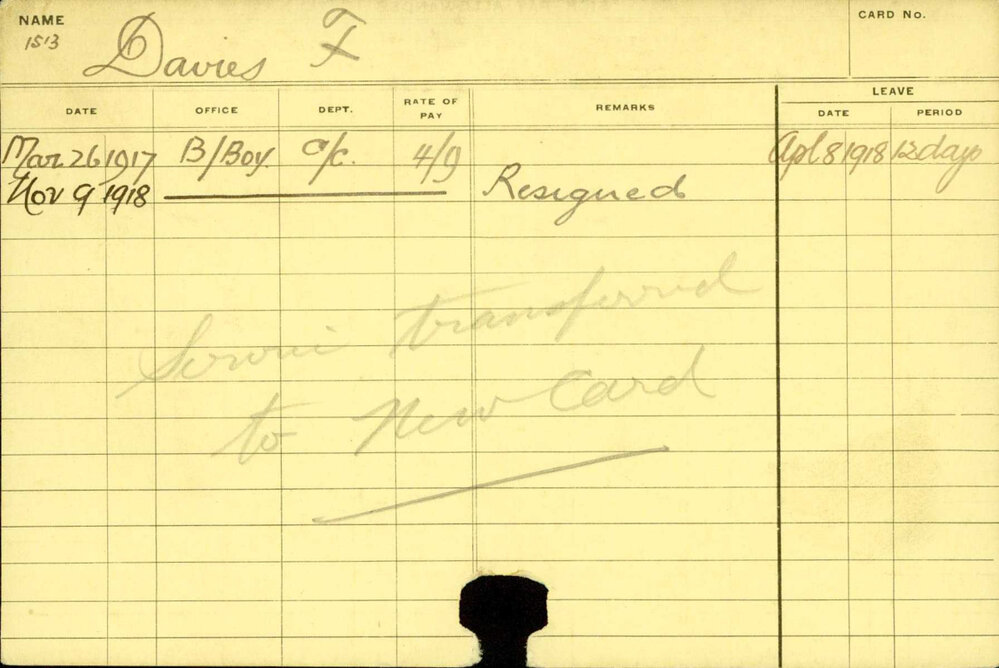 NAME
CARD No.
1513
Davies F
LEAVE
DATE OFFICE DEPT. RATE OF PAY REMARKS DATE PERIOD
Mar 26 1917 B/Boy. C/C. 4/9 Apl 8 1918 12 days
Nov 9 1918 Resigned
Service transferred
to New Card